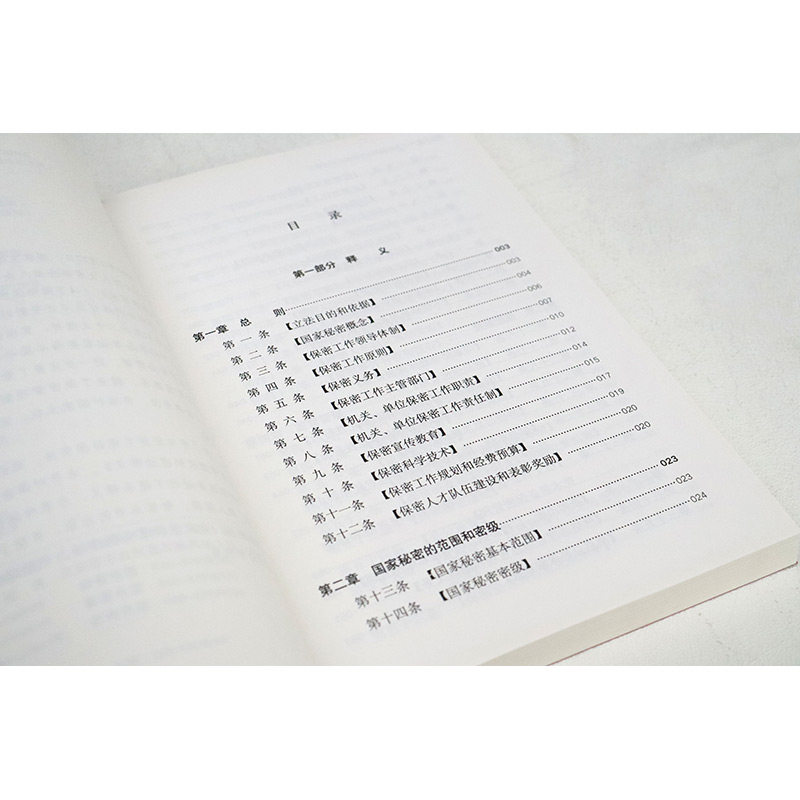 目 录
第一部分 释 义
第一章 总 则……003
第一条 【立法目的和依据】……003
第二条 【国家秘密概念】……004
第三条 【保密工作领导体制】……006
第四条 【保密工作原则】……007
第五条 【保密义务】……010
第六条 【保密工作主管部门】……012
第七条 【机关、单位保密工作职责】……014
第八条 【机关、单位保密工作责任制】……015
第九条 【保密宣传教育】……017
第十条 【保密科学技术】……019
第十一条 【保密工作规划和经费预算】……020
第十二条 【保密人才队伍建设和表彰奖励】……020
第二章 国家秘密的范围和密级……023
第十三条 【国家秘密基本范围】……023
第十四条 【国家秘密密级】……024